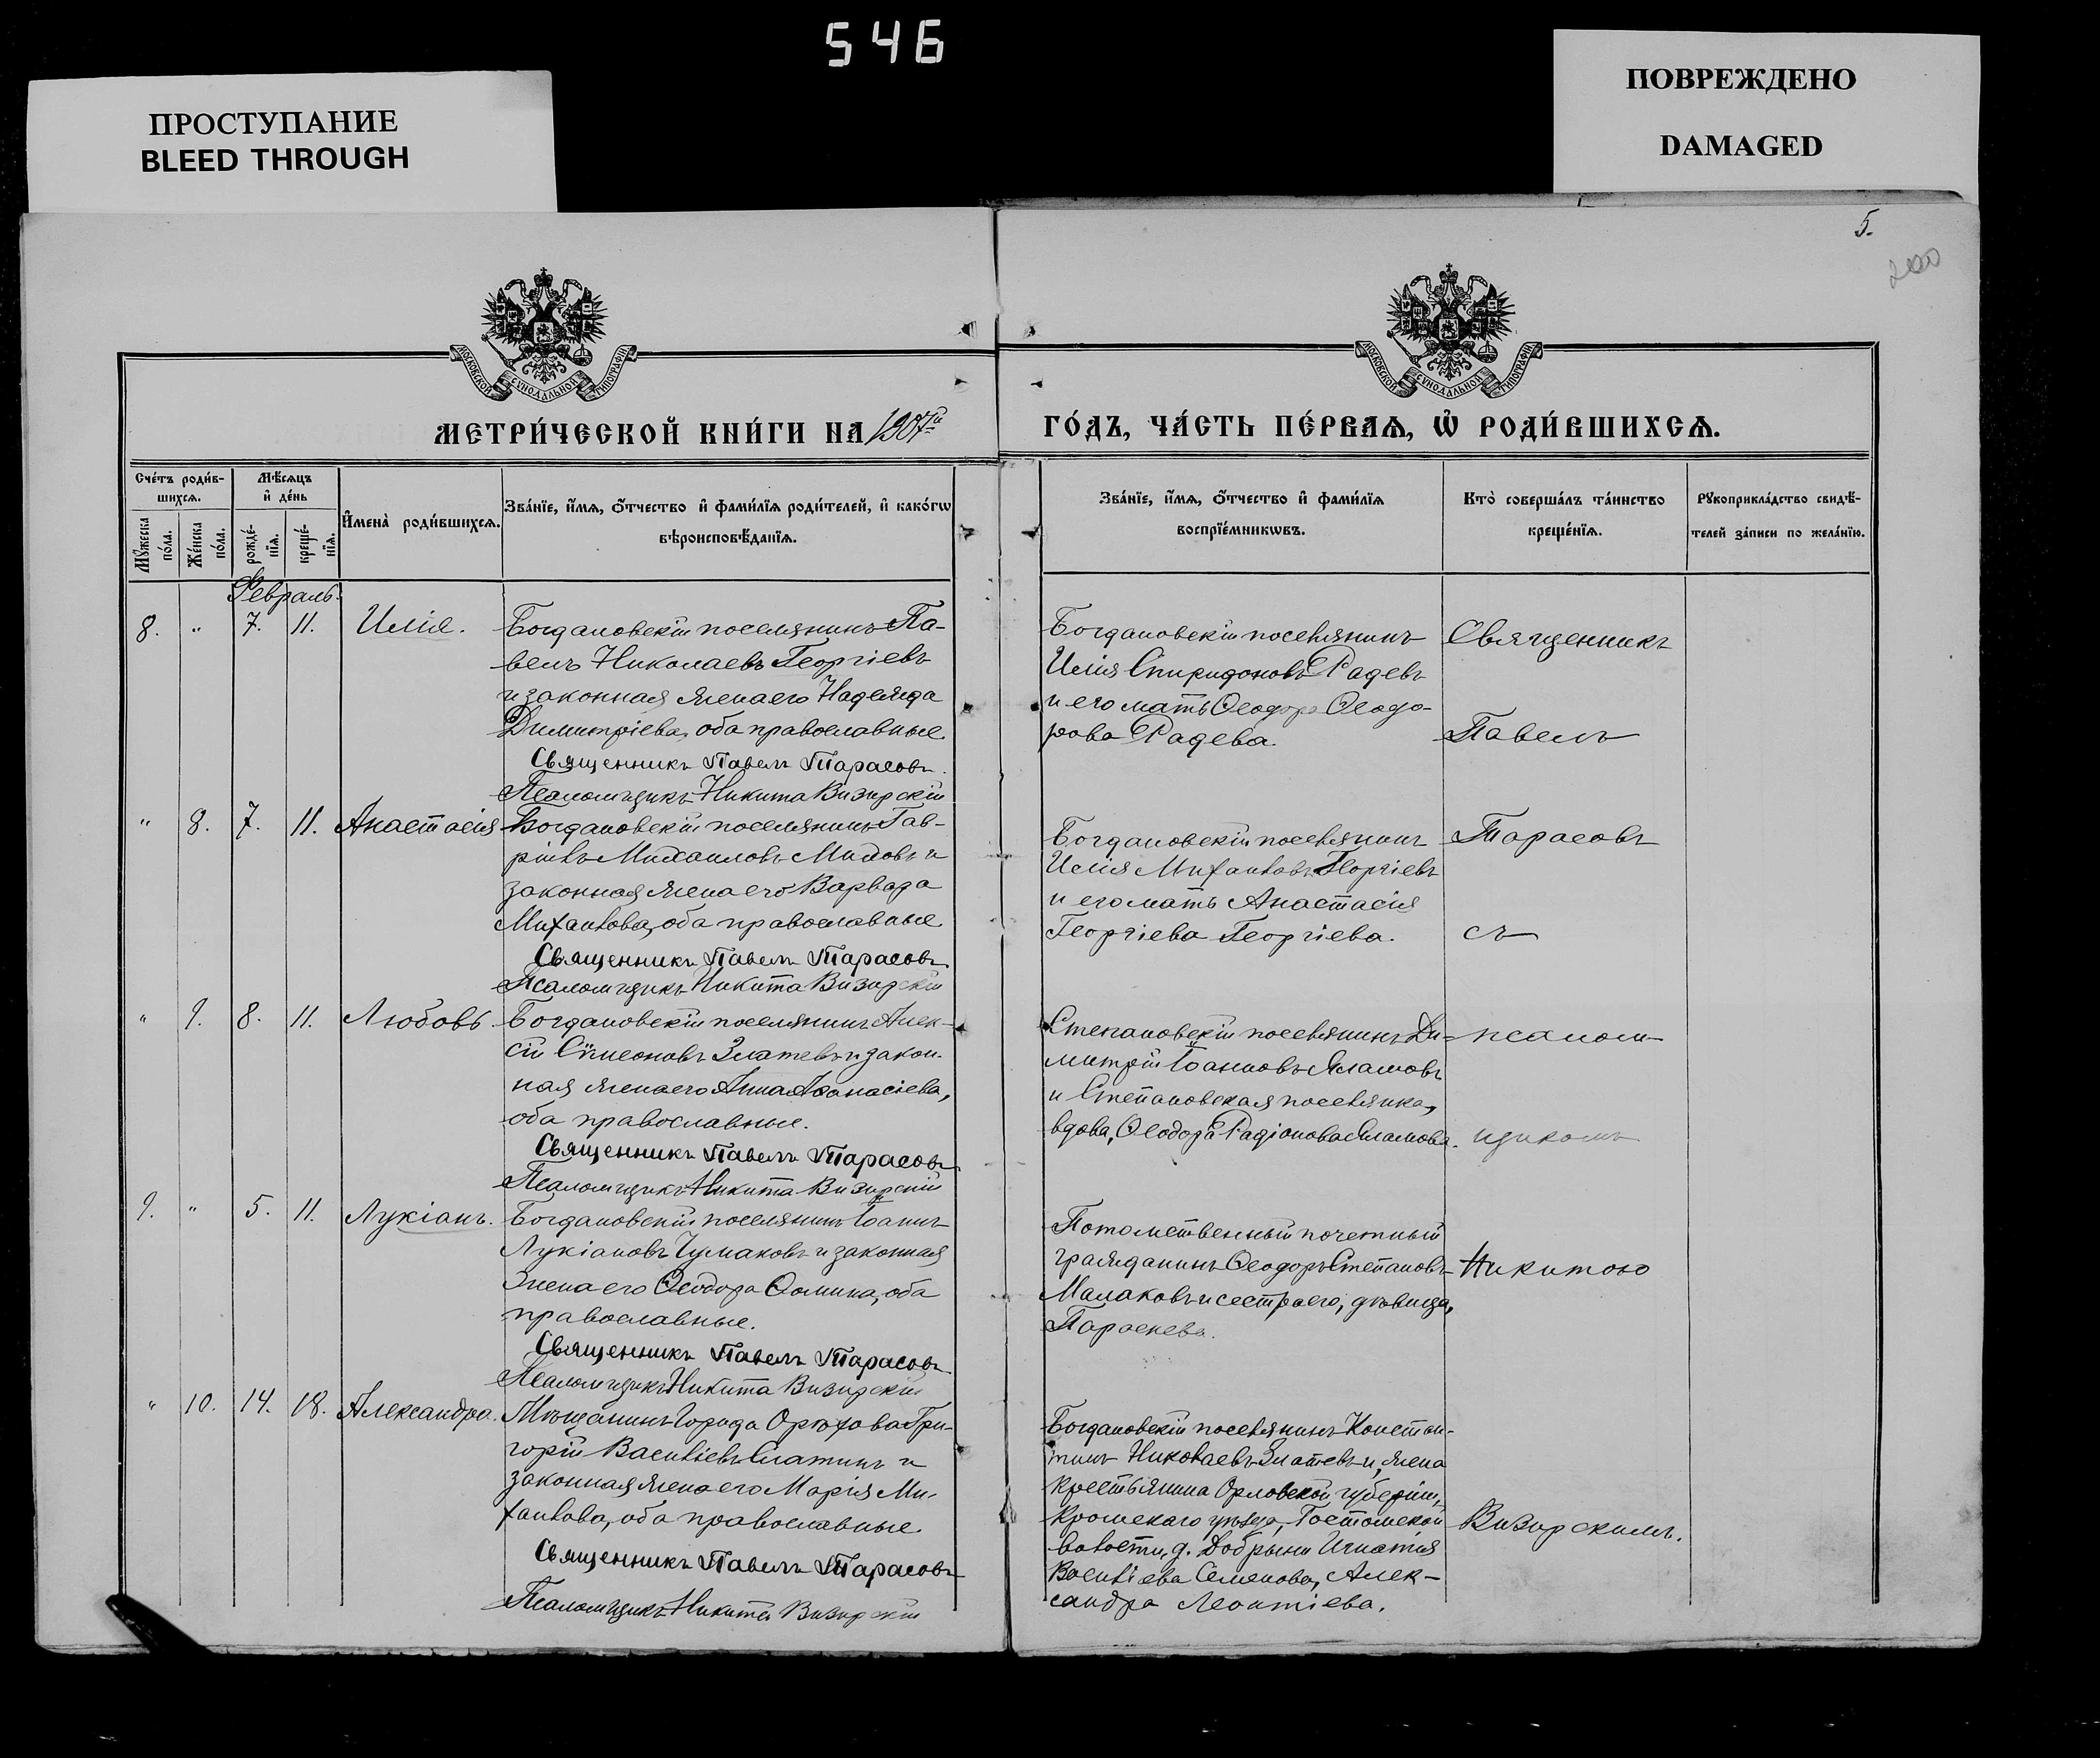 546
ПРОСТУПАНИЕ
BLEED THROUGH
ПОВРЕЖДЕНО
DAMAGED
5.
200
МОСКОВСКОЙ СѴНОДАЛЬНОЙ ТИПОГРАФІИ
МОСКОВСКОЙ СѴНОДАЛЬНОЙ ТИПОГРАФІИ
МЕТРИ́ЧЕСКОЙ КНИ́ГИ НА 1907й
ГО́ДЪ, ЧА́СТЬ ПЕ́РВАѦ, Ѡ РОДИ́ВШИХСѦ.
Сче́тъ роди́в-
шихсѧ.
Мꙋжеска по́ла.
Же́нска по́ла.
Мѣ́сѧцъ
и҆ де́нь
рожде́-
нїѧ.
креще́-
нїѧ.
И҆мена̀ роди́вшихсѧ.
Зва́нїе, и҆́мѧ, ѻ҆́тчество и҆ фами́лїѧ роди́телей, и҆ како́гѡ
вѣроисповѣ́данїѧ.
Зва́нїе, и҆́мѧ, ѻ҆́тчество и҆ фами́лїѧ
воспрїе́мникѡвъ.
Кто̀ соверша́лъ та́инство
креще́нїѧ.
Рꙋкоприкла́дство свидѣ́-
телей за́писи по жела́нїю.
Февраль.
8. " 7. 11. Илія.
Богдановскій поселянинъ Па-
велъ Николаевъ Георгіевъ
и законная жена его Надежда
Димитріева, оба православные
Священникъ Павелъ Тарасовъ.
Псаломщикъ Никита Визирскій
Богдановскій поселянинъ
Илія Спиридоновъ Радевъ
и его мать Ѳеодора Ѳеодо-
рова Радева.
Священникъ
Павелъ
" 8. 7. 11. Анастасія
Богдановскій поселянинъ Гав-
ріилъ Михаиловъ Миховъ и
законная жена его Варвара
Михаилова, оба православные
Священникъ Павелъ Тарасовъ
Псаломщикъ Никита Визирскій
Богдановскій поселянинъ
Илія Михаиловъ Георгіевъ
и его мать Анастасія
Георгіева Георгіева.
Тарасовъ
съ
" 9. 8. 11. Любовь.
Богдановскій поселянинъ Алек-
сій Сѵмеоновъ Златевъ и закон-
ная жена его Анна Аѳанасіева,
оба православные.
Священникъ Павелъ Тарасовъ
Псаломщикъ Никита Визирскій
Степановскій поселянинъ Ди-
митрій Іоанновъ Яламовъ
и Степановская поселянка,
вдова, Ѳеодора Радіонова Яламова.
псалом-
щикомъ
9. " 5. 11. Лукіанъ.
Богдановскій поселянинъ Іоаннъ
Лукіановъ Чумаковъ и законная
жена его Ѳеодора Ѳомина, оба
православные.
Священникъ Павелъ Тарасовъ
Псаломщикъ Никита Визирскій
Потомственный почетный
гражданинъ Ѳеодоръ Степановъ
Малаковъ и сестра его, дѣвица,
Параскева.
Никитою
" 10. 14. 18. Александра.
Мѣщанинъ города Орѣхова Гри-
горій Васильевъ Слатинъ и
законная жена его Марія Ми-
хаилова, оба православные
Священникъ Павелъ Тарасовъ
Псаломщикъ Никита Визирскій
Богдановскій поселянинъ Констан-
тинъ Николаевъ Златевъ и, жена
крестьянина Орловской губерніи,
Кромскаго уѣзда, Гостомской
волости, д. Добрыни Игнатія
Васильева Семенова, Алек-
сандра Леонтіева.
Визирскимъ.